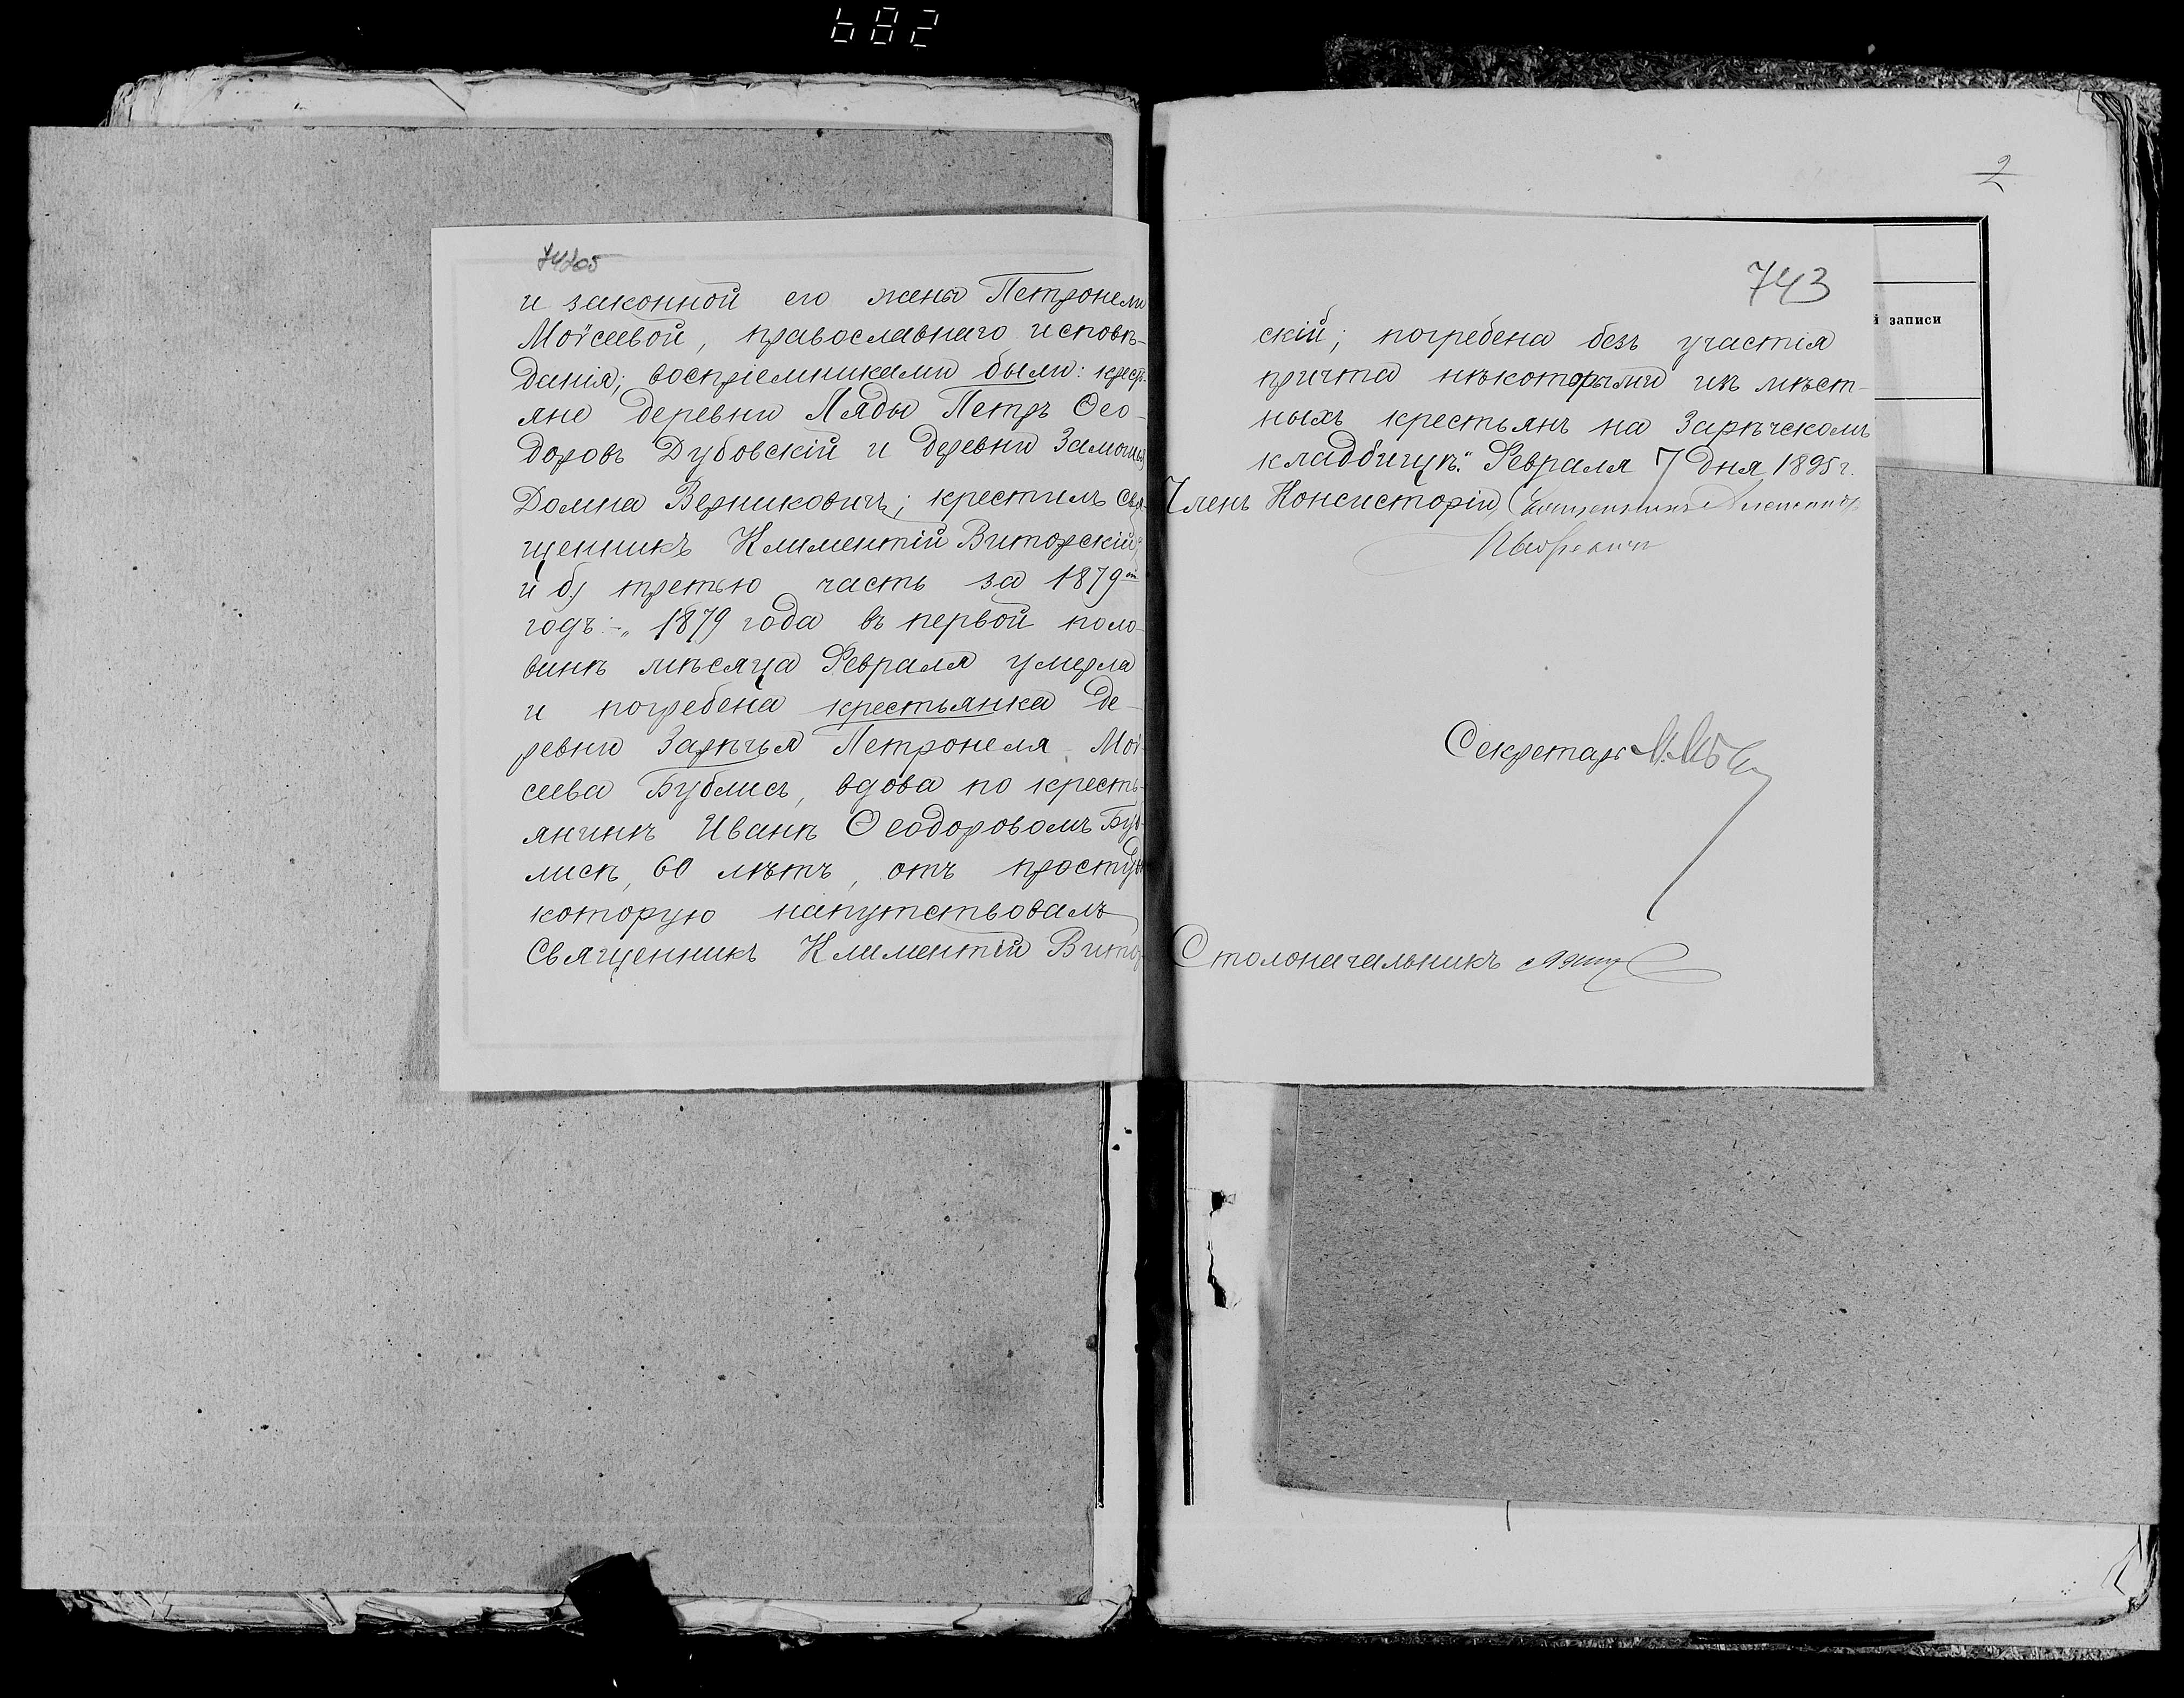 682
и законной его жены Петронели
Моѵсеевой, православнаго исповѣ-
данія; воспріемниками были: крест-
яне деревни Ляды Петръ Ѳео-
доровъ Дубовскій и деревни Замочье
Домна Верниковичъ; крестилъ Свя-
щенникъ Климентій Виторскій;
и б) третью часть за 1879й
годъ:-„ 1879 года въ первой поло-
винѣ мѣсяца Февраля умерла
и погребена крестьянка де-
ревни Зарѣчья Петронеля Моѵ-
сеева Бублисъ, вдова по кресть-
янинѣ Иванѣ Ѳеодоровомъ Буб-
лисѣ, 60 лѣтъ, отъ простуды
которую напутствовалъ
Священникъ Климентій Витор
2
й записи
743
скій; погребена безъ участія
причта нѣкоторыми изъ мѣст-
ныхъ крестьянъ на Зарѣчскомъ
кладбищѣ." Февраля 7 дня 1895 г.
Членъ Консисторіи, Священникъ
Секретарь
Столоначальникъ